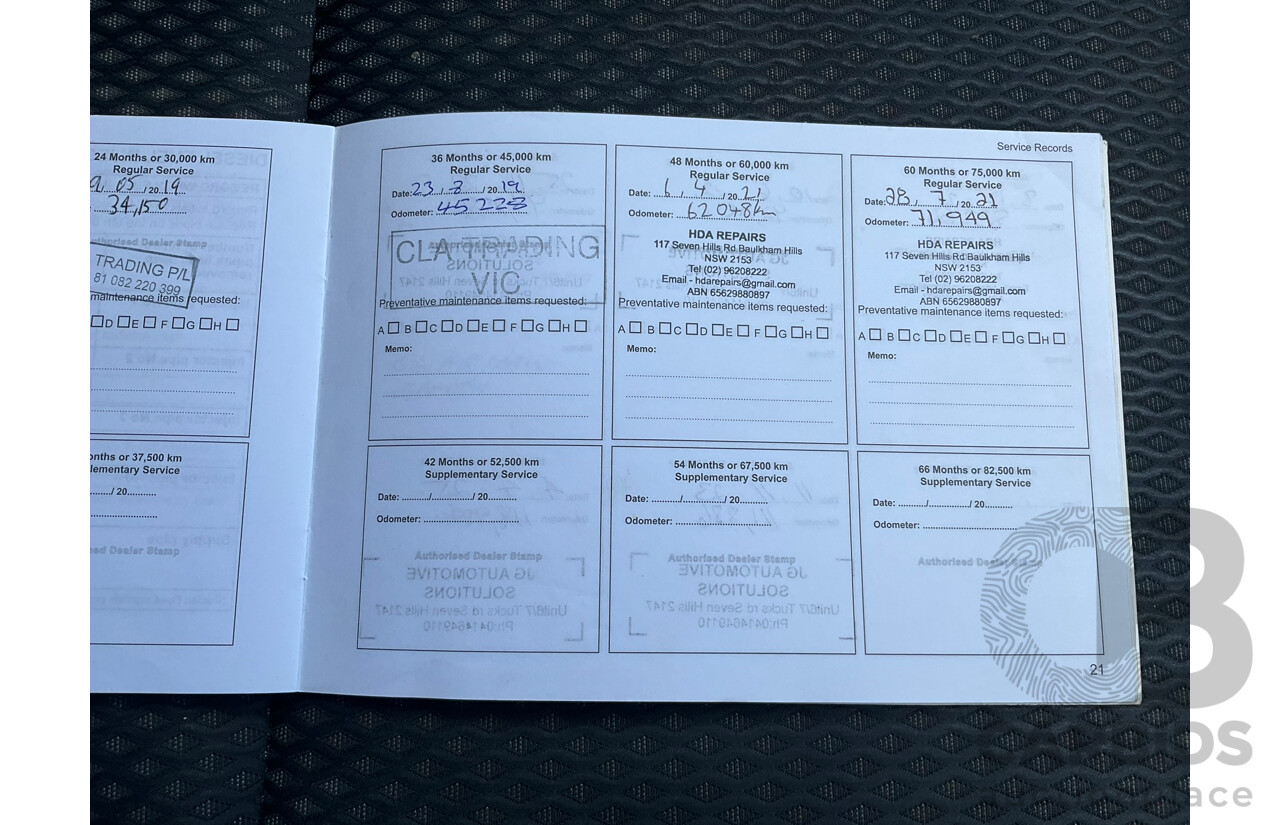 Service Records
24 Months or 30,000 km
Regular Service
05/2019
34,150
Authorised Dealer Stamp
TRADING P/L
81 082 220 399
maintenance items requested:
D E F G H
36 Months or 45,000 km
Regular Service
Date: 23/8/2019
Odometer: 45228
Authorised Dealer Stamp
CLA TRADING
VIC
Preventative maintenance items requested:
A B C D E F G H
Memo:
48 Months or 60,000 km
Regular Service
Date: 6/4/2021
Odometer: 62048km
HDA REPAIRS
117 Seven Hills Rd Baulkham Hills
NSW 2153
Tel (02) 96208222
Email - hdarepairs@gmail.com
ABN 65629880897
Preventative maintenance items requested:
A B C D E F G H
Memo:
60 Months or 75,000 km
Regular Service
Date: 28/7/2021
Odometer: 71,949
HDA REPAIRS
117 Seven Hills Rd Baulkham Hills
NSW 2153
Tel (02) 96208222
Email - hdarepairs@gmail.com
ABN 65629880897
Preventative maintenance items requested:
A B C D E F G H
Memo:
onths or 37,500 km
lementary Service
/ 20
ed Dealer Stamp
42 Months or 52,500 km
Supplementary Service
Date: / / 20
Odometer:
Authorised Dealer Stamp
JG AUTOMOTIVE
SOLUTIONS
Unit6/7 Tucks rd Seven Hills 2147
Ph:0414649110
54 Months or 67,500 km
Supplementary Service
Date: / / 20
Odometer:
Authorised Dealer Stamp
JG AUTOMOTIVE
SOLUTIONS
Unit6/7 Tucks rd Seven Hills 2147
Ph:0414649110
66 Months or 82,500 km
Supplementary Service
Date: / / 20
Odometer:
Authorised Dealer Stamp
21